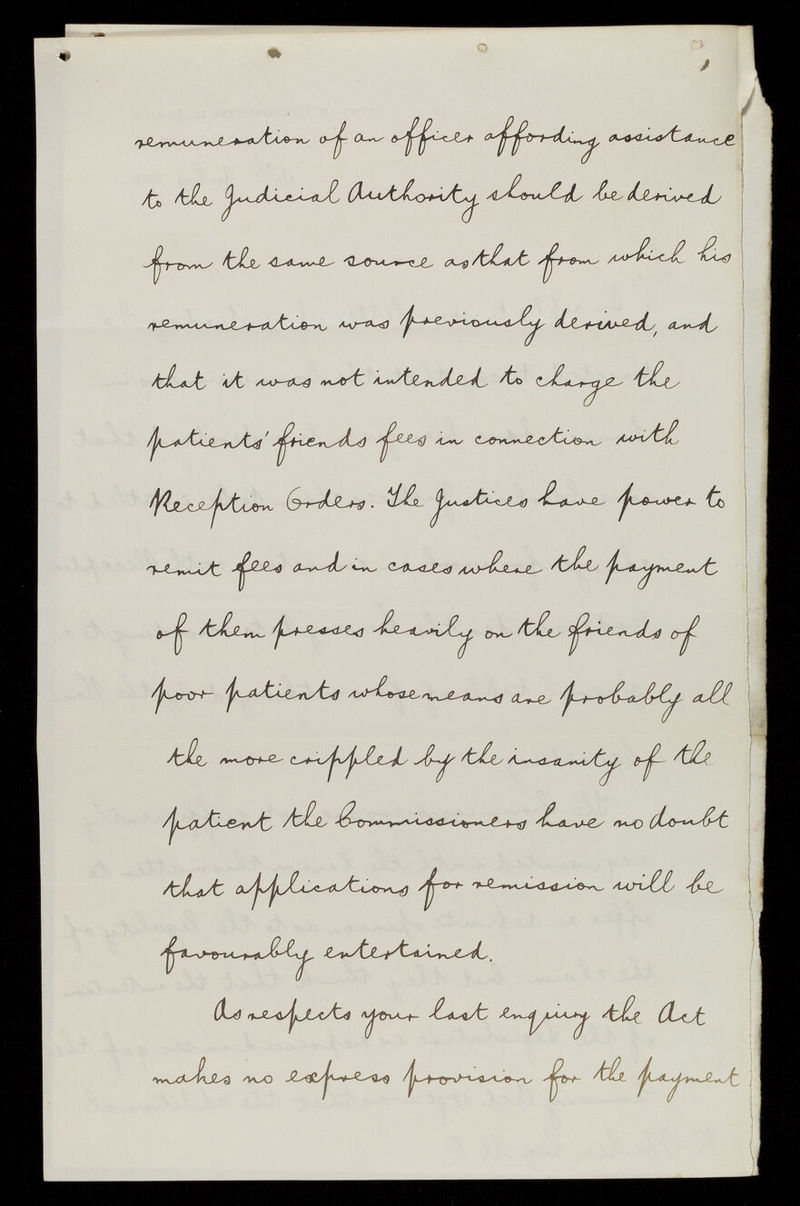 remuneration of an officer affording assistance
to the Judicial Authority should be derived
from the same source as that from which his
remuneration was previously derived, and
that it was not intended to charge the
patients' friends fees in connection with
Reception Orders. The Justices have power to
remit fees and in cases where the payment
of them presses heavily on the friends of
poor patients whose means are probably all
the more crippled by the insanity of the
patient the Commissioners have no doubt
that applications for remission will be
favourably entertained.
As respects your last enquiry the Act
makes no express provision for the payment